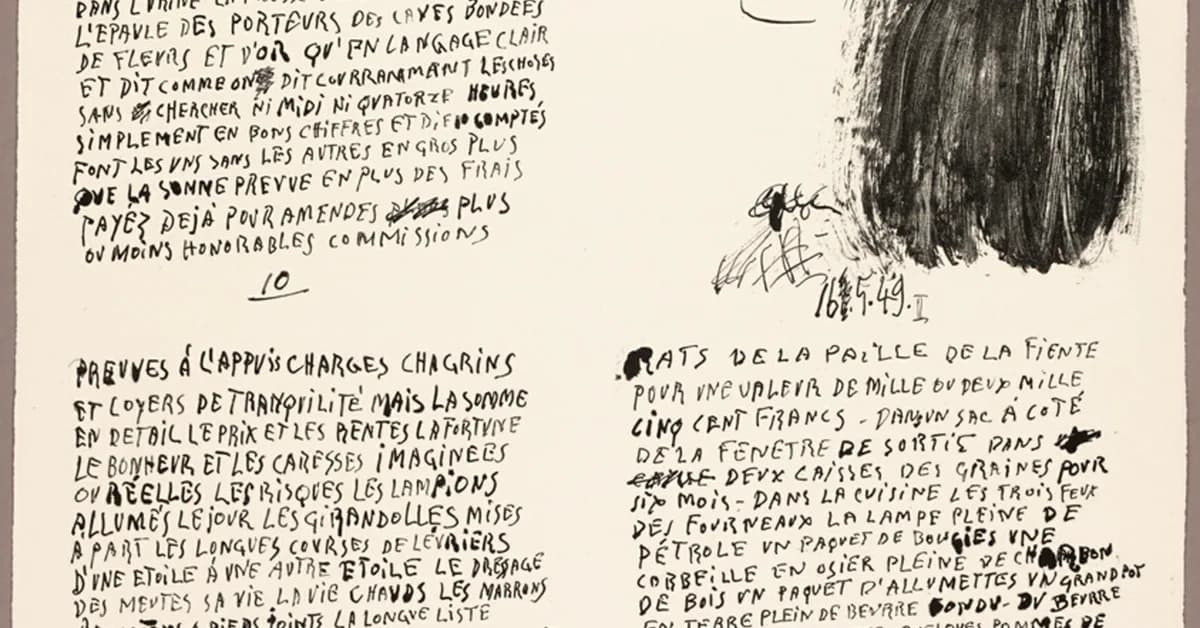 DANS L'URINE
L'EPAULE DES PORTEURS DES CAVES BONDÉES
DE FLEURS ET D'OR QU'EN LANGAGE CLAIR
ET DIT COMME ON DIT COURRANAMANT LES CHOSES
SANS CHERCHER NI MIDI NI QUATORZE HEURES
SIMPLEMENT EN BONS CHIFFRES ET COMPTÉS
FONT LES UNS SANS LES AUTRES EN GROS PLUS
QUE LA SONME PREVUE EN PLUS DES FRAIS
PAYÉZ DEJÀ POUR AMENDES PLUS
OU MOINS HONORABLES COMMISSIONS
10
16.5.49. II
PREUVES Á L'APPUIS CHARGES CHAGRINS
ET LOYERS DE TRANQUILITÉ MAIS LA SOMME
EN DETAIL LE PRIX ET LES RENTES LA FORTUNE
LE BONHEUR ET LES CARESSES IMAGINEES
OU RÉELLES LES RISQUES LES LAMPIONS
ALLUMÉS LE JOUR LES GIRANDOLLES MISES
A PART LES LONGUES COURSES DE LÉVRIERS
D'UNE ETOILE À UNE AUTRE ETOILE LE DRESSAGE
DES MEUTES SA VIE LA VIE CHAUDS LES MARRONS
PIEDS JOINTS LA LONGUE LISTE
RATS DE LA PAILLE DE LA FIENTE
POUR UNE VALEUR DE MILLE OU DEUX MILLE
CINQ CENT FRANCS - DANS UN SAC À COTÉ
DE LA FENETRE DE SORTIE DANS
DEUX CAISSES DES GRAINES POUR
SIX MOIS - DANS LA CUISINE LES TROIS FEUX
DES FOURNEAUX LA LAMPE PLEINE DE
PÉTROLE UN PAQUET DE BOUGIES UNE
CORBEILLE EN OSIER PLEINE DE CHARBON
DE BOIS UN PAQUET D'ALLUMETTES UN GRAND POT
EN TERRE PLEIN DE BEURRE FONDU - DU BEURRE
QUELQUES POMMES DE